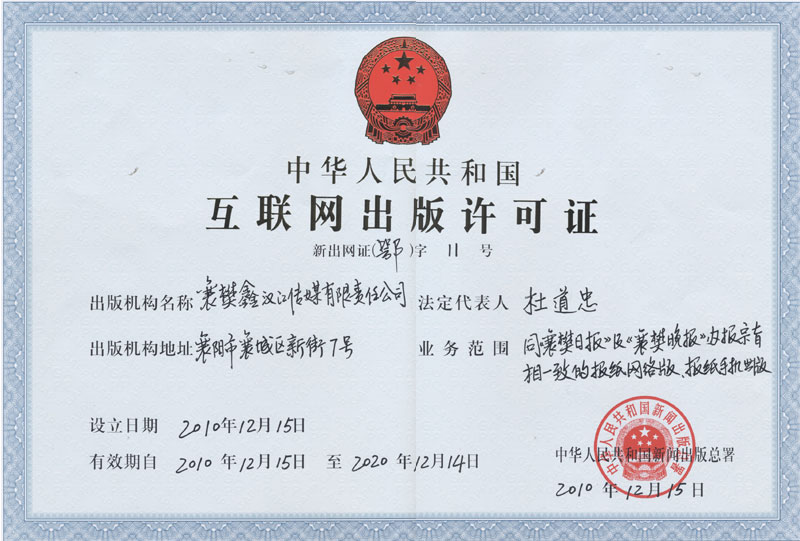 中华人民共和国
互联网出版许可证
新出网证(鄂)字 11 号
出版机构名称 襄樊鑫汉江传媒有限责任公司 法定代表人 杜道忠
出版机构地址 襄阳市襄城区新街7号 业务范围 同《襄樊日报》及《襄樊晚报》办报宗旨
相一致的报纸网络版、报纸手机出版
设立日期 2010年12月15日
有效期自 2010年12月15日 至 2020年12月14日
中华人民共和国新闻出版总署
中华人民共和国新闻出版总署
2010年12月15日